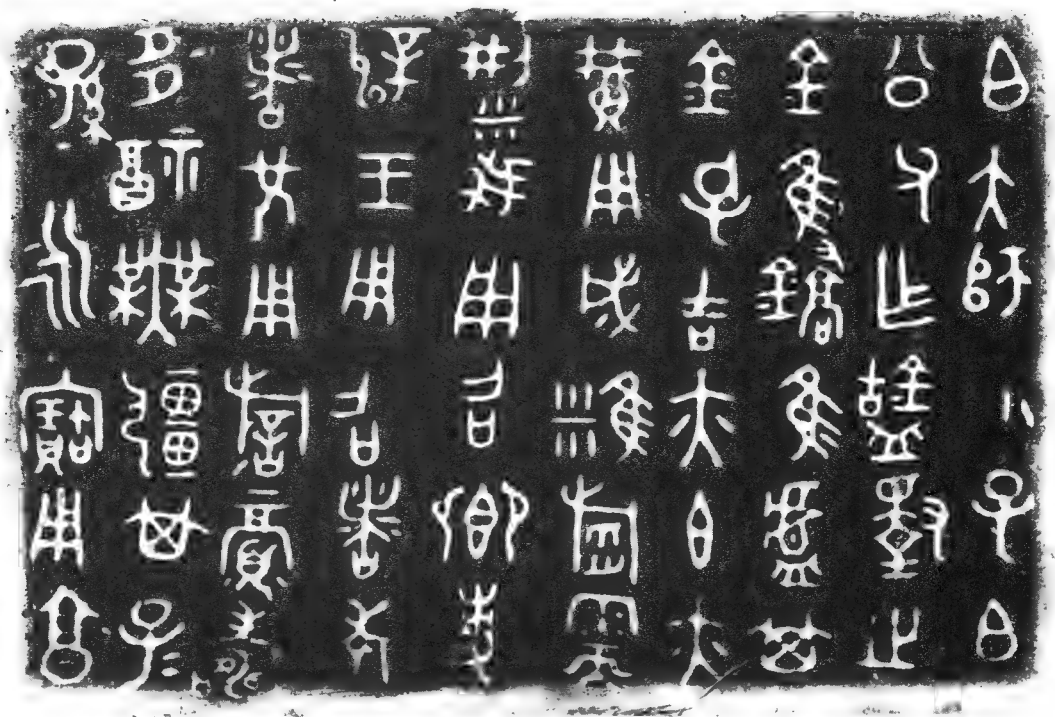 白大師小子白
公父乍𥂴擇之
金隹鐈隹盧其
金孔吉亦玄亦
黃用成糕稻需
梁我用召卿事
辟王用召者考
者兄用旂眉壽
多福無彊其子=
孫=永寶用享